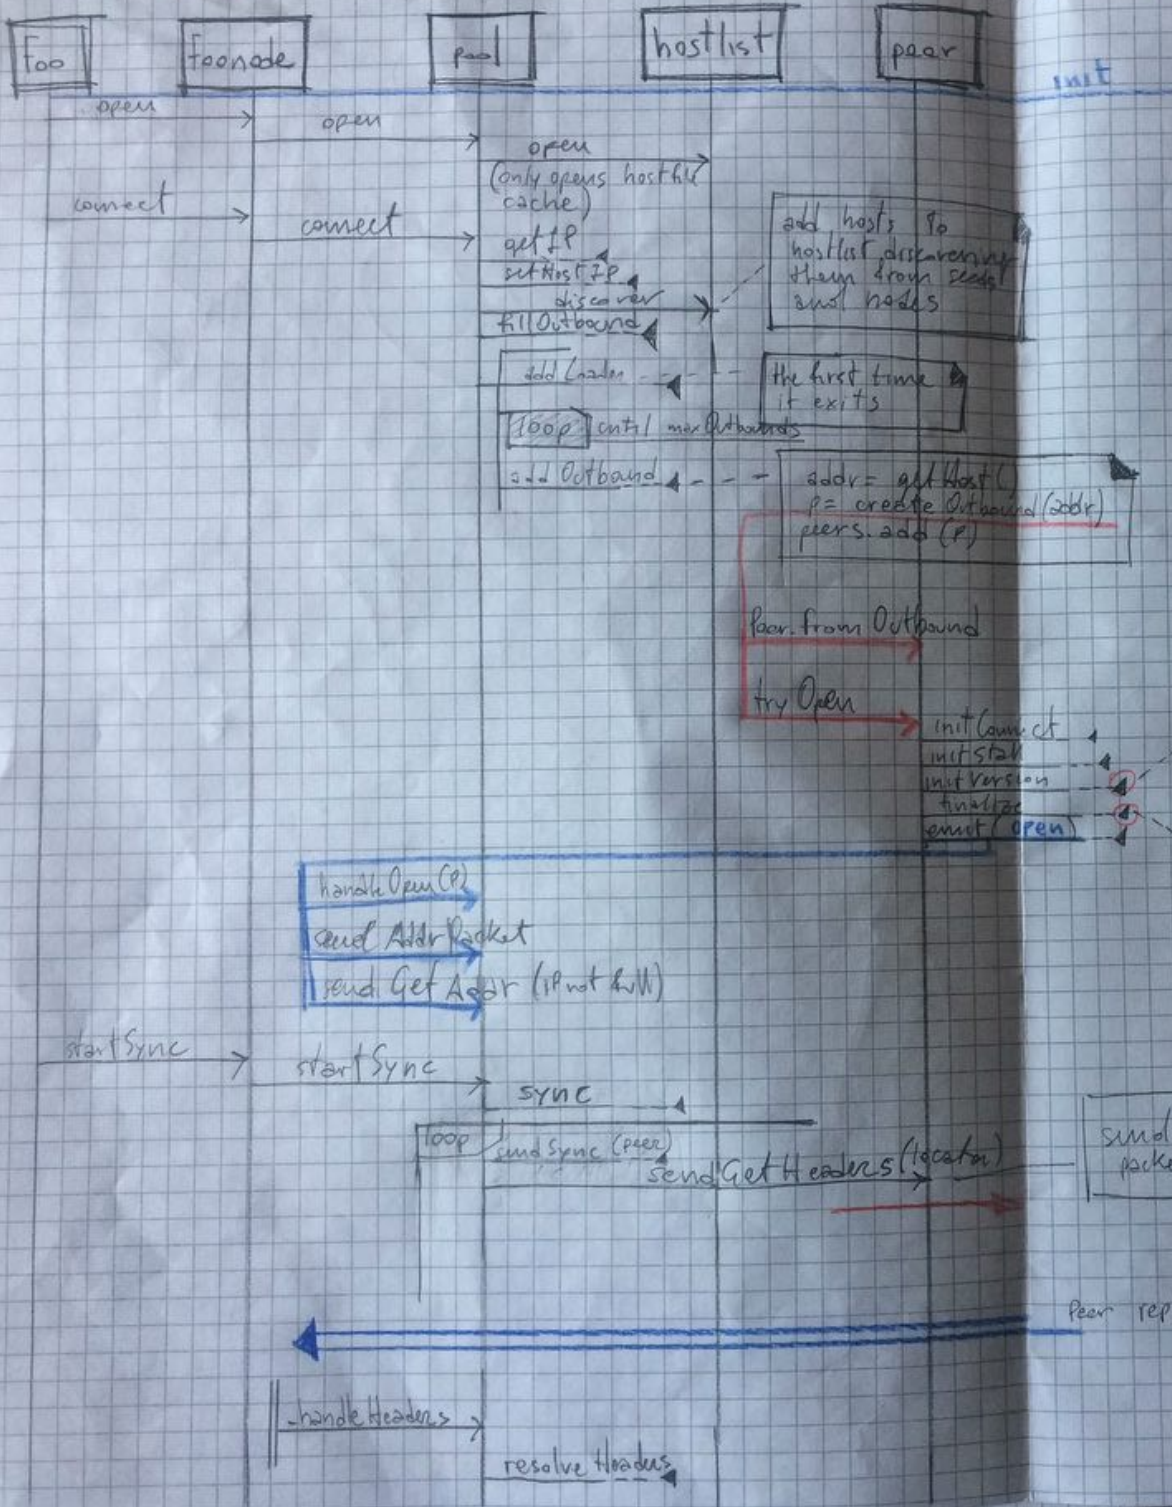 foo
foonode
pool
hostlist
peer
init
open
open
open
(only opens hostfile
cache)
connect
connect
getIP
setHostIP
discover
fillOutbound
add hosts to
hostlist discovering
them from seeds
and nodes
addLoader
the first time
it exits
loop until maxOutbounds
add Outbound
addr = getHost()
p = create Outbound(addr)
peers.add(P)
Peer.from Outbound
try Open
initConnect
initStall
initVersion
finalize
emit(open)
handleOpen(P)
send AddrPacket
send GetAddr (if not full)
startSync
startSync
sync
loop
sendSync(peer)
sendGetHeaders(locator)
send
packe
Peer rep
-handleHeaders
resolve Headers